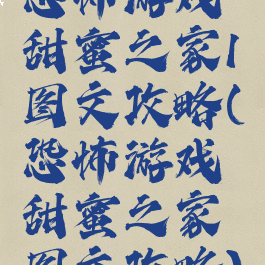 恐怖游戏
甜蜜之家|
图文攻略(
恐怖游戏
甜蜜之家
图文攻略)